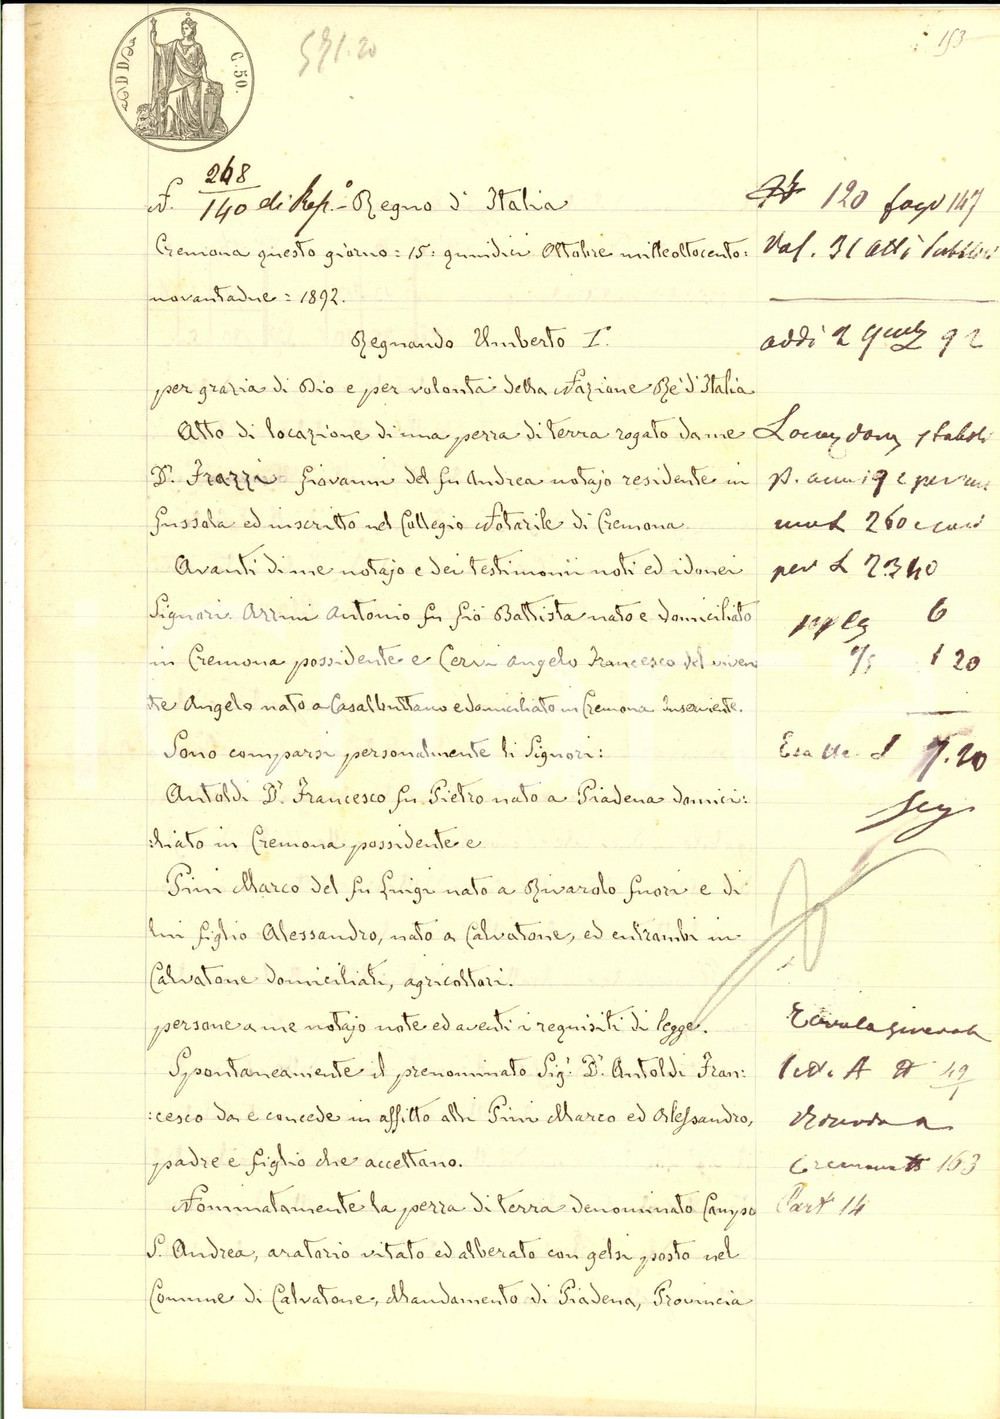 153
C. 50.
N. 268/140 di Rep.° - Regno d' Italia
Cremona questo giorno = 15 = quindici Ottobre milleottocento=
novantadue = 1892.
Regnando Umberto I°.
per grazia di Dio e per volontà della Nazione Re d'Italia
Atto di locazione di una pezza di terra rogato da me
D.r Frazzi Giovanni del fu Andrea notajo residente in
Gussola ed inscritto nel Collegio Notarile di Cremona.
Avanti di me notajo e dei testimonii noti ed idonei
Signori Azzini Antonio fu Gio Battista nato e domiciliato
in Cremona possidente e Cervi Angelo Francesco del viven
te Angelo nato a Casalbuttano e domiciliato in Cremona Inserviente.
Sono comparsi personalmente li Signori:
Antoldi D.r Francesco fu Pietro nato a Piadena domici:
:liato in Cremona possidente e
Pini Marco del fu Luigi nato a Rivarolo fuori e di
lui figlio Alessandro, nato a Calvatone, ed entrambi in
Calvatone domiciliati, agricoltori.
persone a me notajo note ed aventi i requisiti di legge.
Spontaneamente il prenominato Sig.r D.r Antoldi Fran:
:cesco da e concede in affitto alli Pini Marco ed Alessandro,
padre e figlio che accettano.
Nominatamente la pezza di terra denominato Campo
S. Andrea, aratorio vitato ed alberato con gelsi posto nel
Comune di Calvatone, Mandamento di Piadena, Provincia
120 fago 147
Vol. 31 atti Pubblici
addì 2 92
p. anni 9 e per
260
per L 2340
6
1 20
Esatte L 7.20
A 49/1
Cremona 163
Part 14